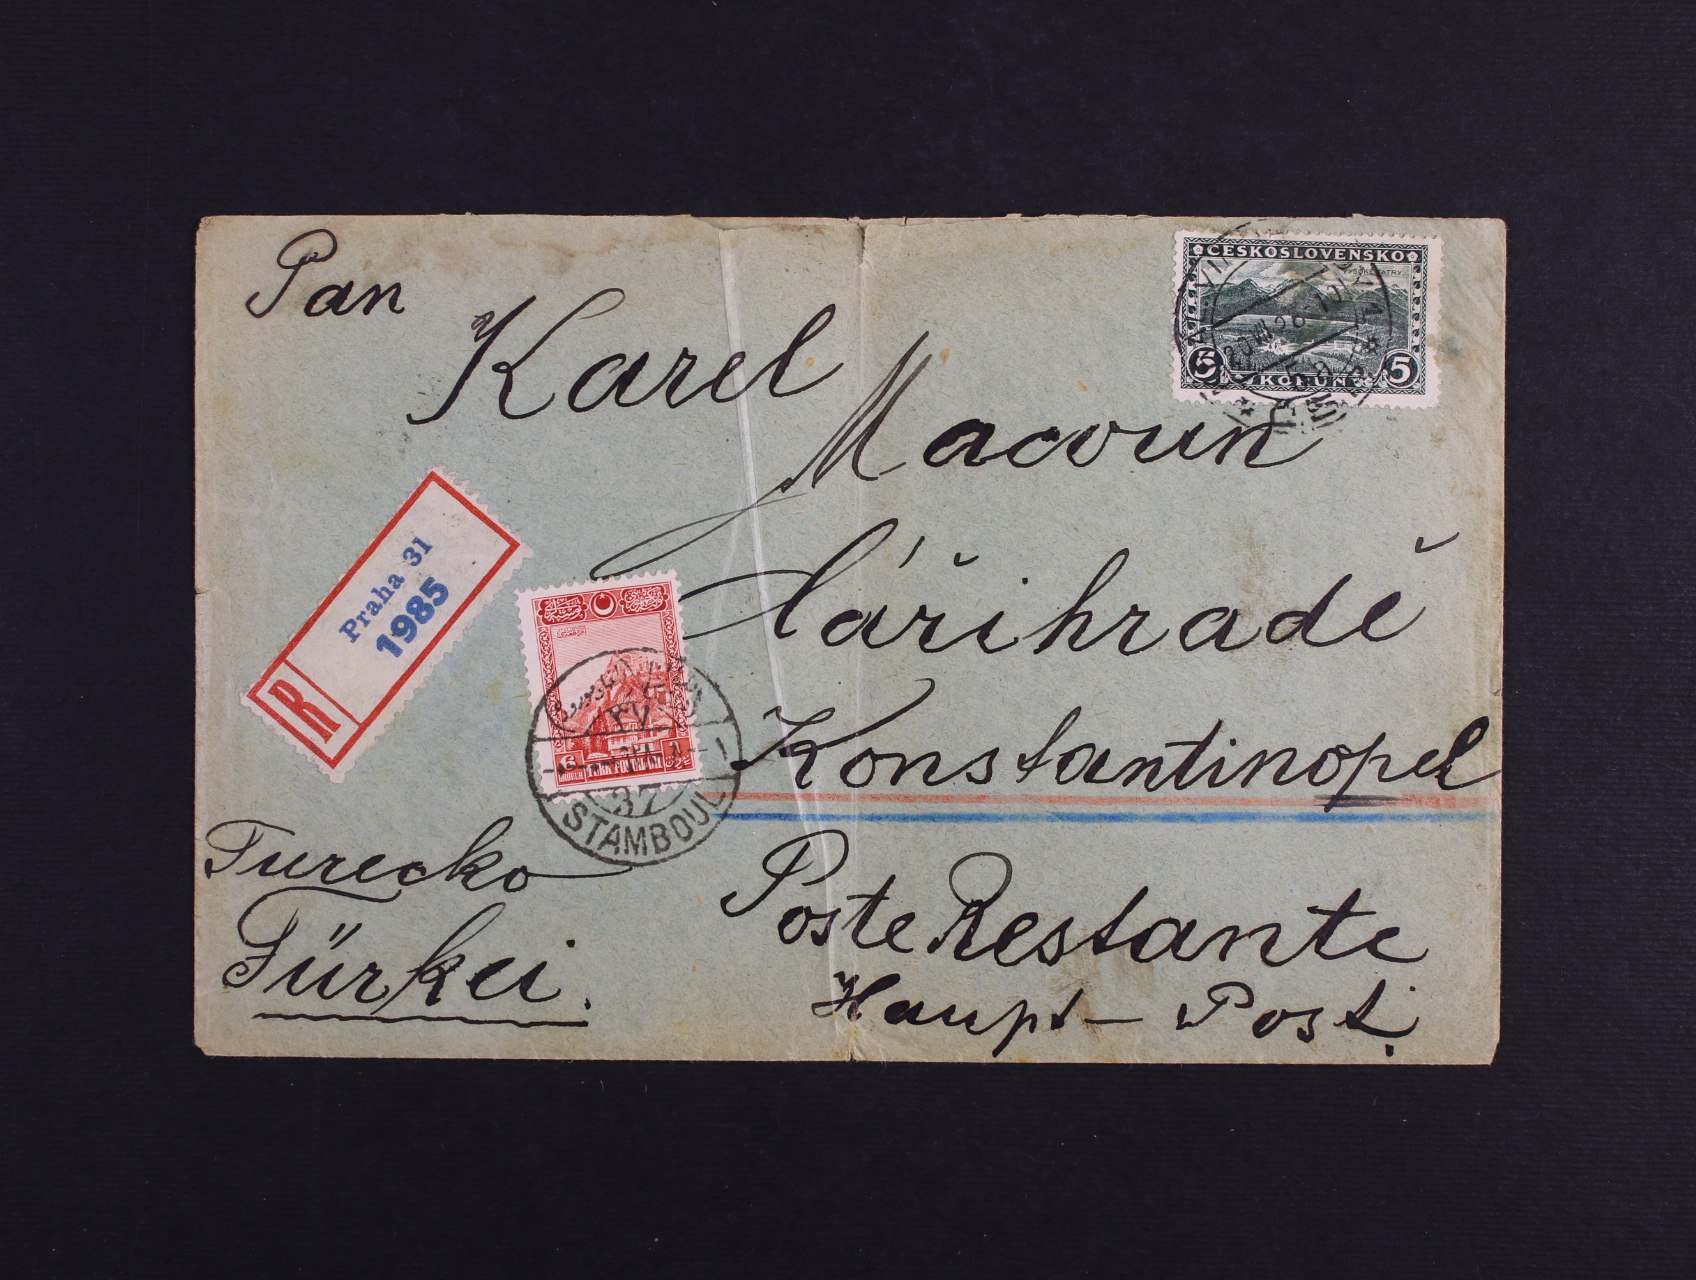 Pan
Karel
Macoun
Cařihradě
Konstantinopel
Poste Restante
Haupt-Post.
Turecko
Türkei.
Praha 31
1985
R
ČESKOSLOVENSKO
VYSOKÉ TATRY
5 KORUN 5
20.VIII.26
6
37
STAMBOUL